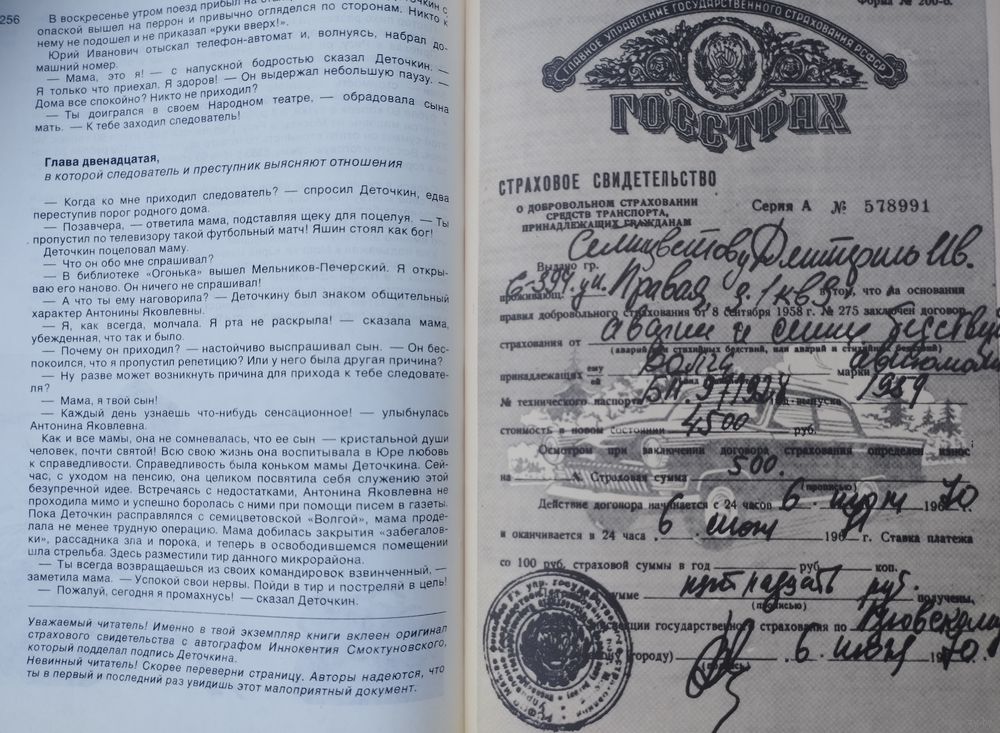 256
В воскресенье утром поезд прибыл на
опаской вышел на перрон и привычно огляделся по сторонам. Никто к
нему не подошел и не приказал «руки вверх!».
Юрий Иванович отыскал телефон-автомат и, волнуясь, набрал до-
машний номер.
— Мама, это я! — с напускной бодростью сказал Деточкин. —
Я только что приехал. Я здоров! — Он выдержал небольшую паузу. —
Дома все спокойно? Никто не приходил?
— Ты доигрался в своем Народном театре, — обрадовала сына
мать. — К тебе заходил следователь!
Глава двенадцатая,
в которой следователь и преступник выясняют отношения
— Когда ко мне приходил следователь? — спросил Деточкин, едва
переступив порог родного дома.
— Позавчера, — ответила мама, подставляя щеку для поцелуя. — Ты
пропустил по телевизору такой футбольный матч! Яшин стоял как бог!
Деточкин поцеловал маму.
— Что он обо мне спрашивал?
— В библиотеке «Огонька» вышел Мельников-Печерский. Я откры-
ваю его наново. Он ничего не спрашивал!
— А что ты ему наговорила? — Деточкину был знаком общительный
характер Антонины Яковлевны.
— Я, как всегда, молчала. Я рта не раскрыла! — сказала мама,
убежденная, что так и было.
— Почему он приходил? — настойчиво выспрашивал сын. — Он бес-
покоился, что я пропустил репетицию? Или у него была другая причина?
— Ну разве может возникнуть причина для прихода к тебе следовате-
ля?
— Мама, я твой сын!
— Каждый день узнаешь что-нибудь сенсационное! — улыбнулась
Антонина Яковлевна.
Как и все мамы, она не сомневалась, что ее сын — кристальной души
человек, почти святой! Всю свою жизнь она воспитывала в Юре любовь
к справедливости. Справедливость была коньком мамы Деточкина. Сей-
час, с уходом на пенсию, она целиком посвятила себя служению этой
безупречной идее. Встречаясь с недостатками, Антонина Яковлевна не
проходила мимо и успешно боролась с ними при помощи писем в газеты.
Пока Деточкин расправлялся с семицветовской «Волгой», мама проде-
лала не менее трудную операцию. Мама добилась закрытия «забегалов-
ки», рассадника зла и порока, и теперь в освободившемся помещении
шла стрельба. Здесь разместили тир данного микрорайона.
— Ты всегда возвращаешься из своих командировок взвинченный, —
заметила мама. — Успокой свои нервы. Пойди в тир и постреляй в цель!
— Пожалуй, сегодня я промахнусь! — сказал Деточкин.
Уважаемый читатель! Именно в твой экземпляр книги вклеен оригинал
страхового свидетельства с автографом Иннокентия Смоктуновского,
который подделал подпись Деточкина.
Невинный читатель! Скорее переверни страницу. Авторы надеются, что
ты в первый и последний раз увидишь этот малоприятный документ.
Форма № 200-б.
ГЛАВНОЕ УПРАВЛЕНИЕ ГОСУДАРСТВЕННОГО СТРАХОВАНИЯ РСФСР
ГОССТРАХ
СТРАХОВОЕ СВИДЕТЕЛЬСТВО
О ДОБРОВОЛЬНОМ СТРАХОВАНИИ
СРЕДСТВ ТРАНСПОРТА,
ПРИНАДЛЕЖАЩИХ ГРАЖДАНАМ
Серия А № 578991
Выдано гр. Семицветову Дмитрию Ив.
прожив­ающ. ул. Правая, д. 1 кв 3 в том, что на основании
правил добровольного страхования от 8 сентября 1958 г. № 275 заключен договор
страхования от аварии
(аварий или стихийных бедствий, или аварий и стихийных бедствий)
принадлежащих ему Волги марки
ей
№ технического паспорта год выпуска
стоимость в новом состоянии 4500 руб.
Осмотром при заключении договора страхования определен износ
на % Страховая сумма 500.
(прописью)
Действие договора начинается с 24 часов 6. июня 1970
и оканчивается в 24 часа 6. июня г. Ставка платежа
со 100 руб. страховой суммы в год руб. коп.
сумме руб. получены,
(прописью)
инспекции государственного страхования по
(городу) 6. июня 1970.
(подпись)